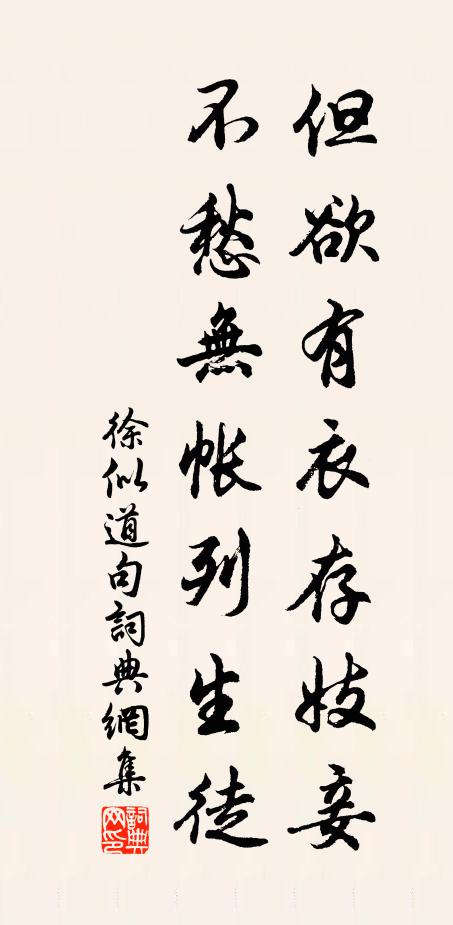 但欲有衣存妓妾
不愁無帳列生徒
徐似道句詞典網集
詞典網印